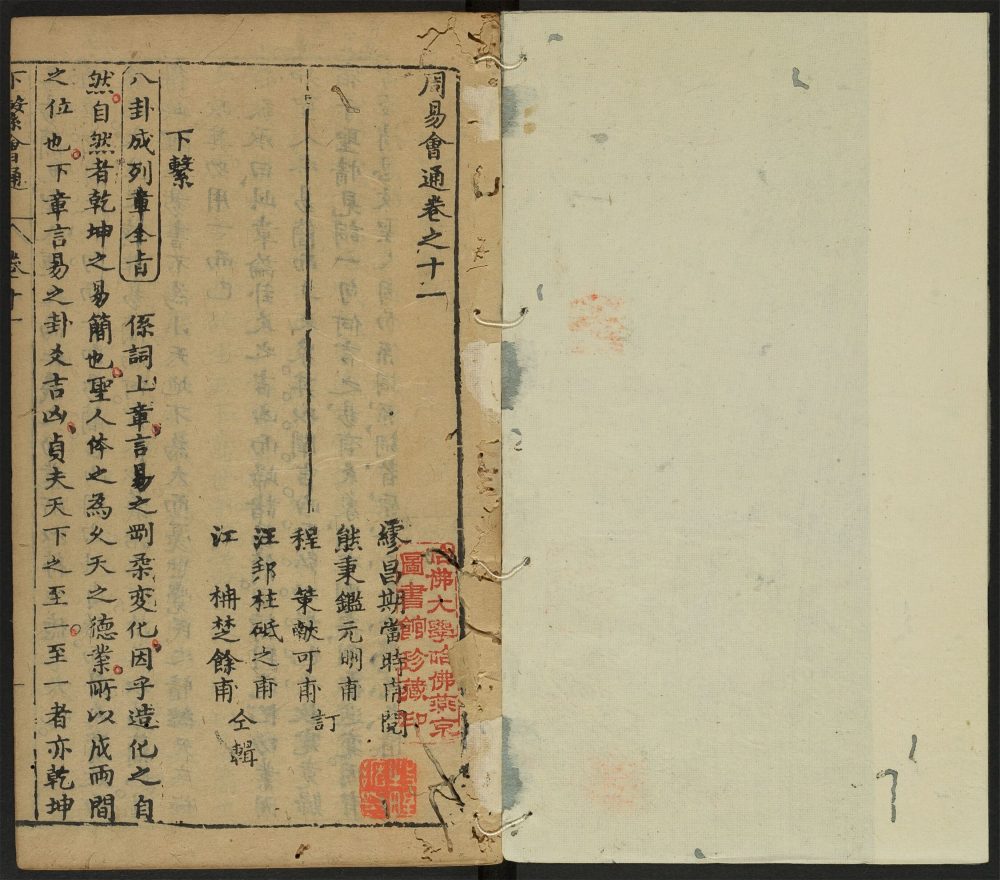 周易會通卷之十一
繆昌期當時甫閱
熊秉鑑元明甫
程策献可甫訂
汪邦柱砥之甫
江柟楚餘甫
仝輯
下繫
八卦成列章全旨 係詞上章言易之剛柔变化因乎造化之自
然自然者乾坤之易簡也聖人体之為久天之德業所以成兩間
之位也下章言易之卦爻吉凶貞夫天下之至一至一者亦乾坤
下繫會通 卷十一
哈佛大學哈佛燕京
圖書館珍藏印